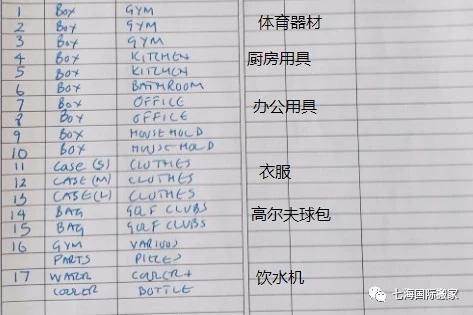 1 Box GYM
2 Box GYM 体育器材
3 Box GYM
4 Box KITCHEN 厨房用具
5 Box KITCHEN
6 Box BATHROOM
7 Box OFFICE 办公用具
8 Box OFFICE
9 Box HOUSEHOLD
10 Box HOUSEHOLD
11 Case (S) CLOTHES 衣服
12 CASE (M) CLOTHES
13 CASE (L) CLOTHES
14 BAG GOLF CLUBS 高尔夫球包
15 BAG GOLF CLUBS
16 GYM VARIOUS
PARTS PIECES
17 WATER COOLER + 饮水机
COOLER BOTTLE
七海国际搬家